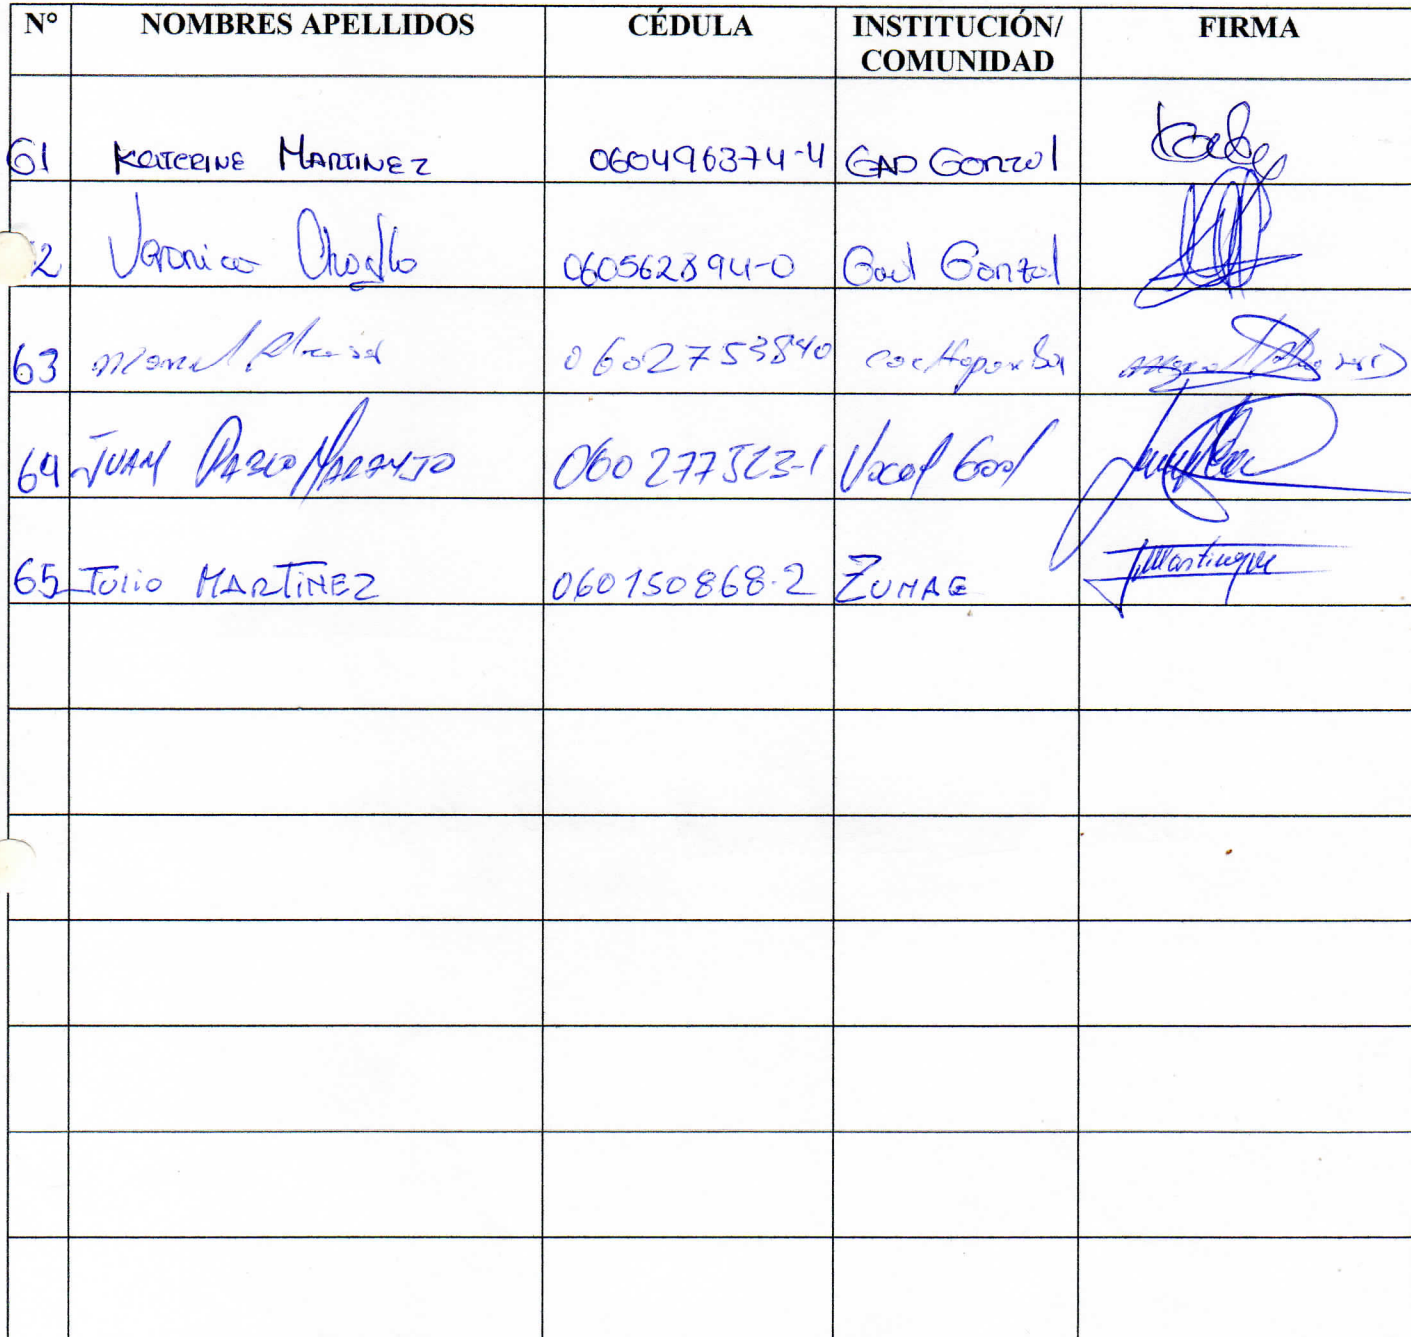 N° NOMBRES APELLIDOS CÉDULA INSTITUCIÓN/ FIRMA
COMUNIDAD
61 Katerine Martinez 060496374-4 GAD Gonzol
2 Veronica 060562894-0 Gad Gonzol
63 Manuel 0602753840
64 Juan Pablo Naranjo 060277523-1 Vocal Gad
65 Julio Martinez 060150868-2 Zunag